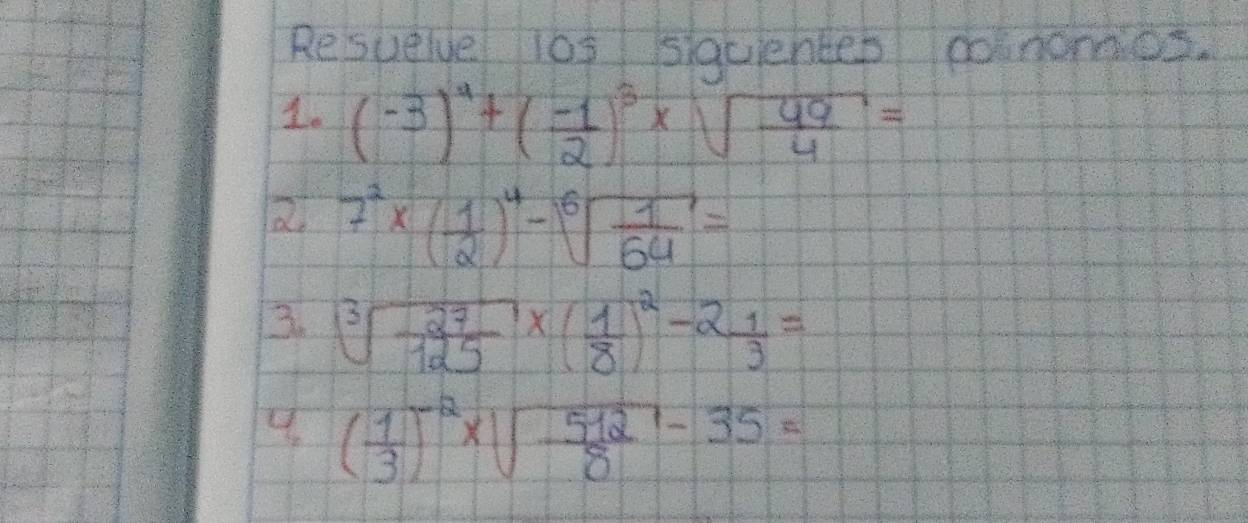 Resuelve los siguientes polinomios.
1. (-3)⁴ + (-1/2)³ x √(49/4) =
2. 7² x (1/2)⁴ - ⁶√(1/64) =
3. ³√(27/125) x (1/8)² - 2 1/3 =
4. (1/3)⁻² x √(512/8) - 35 =